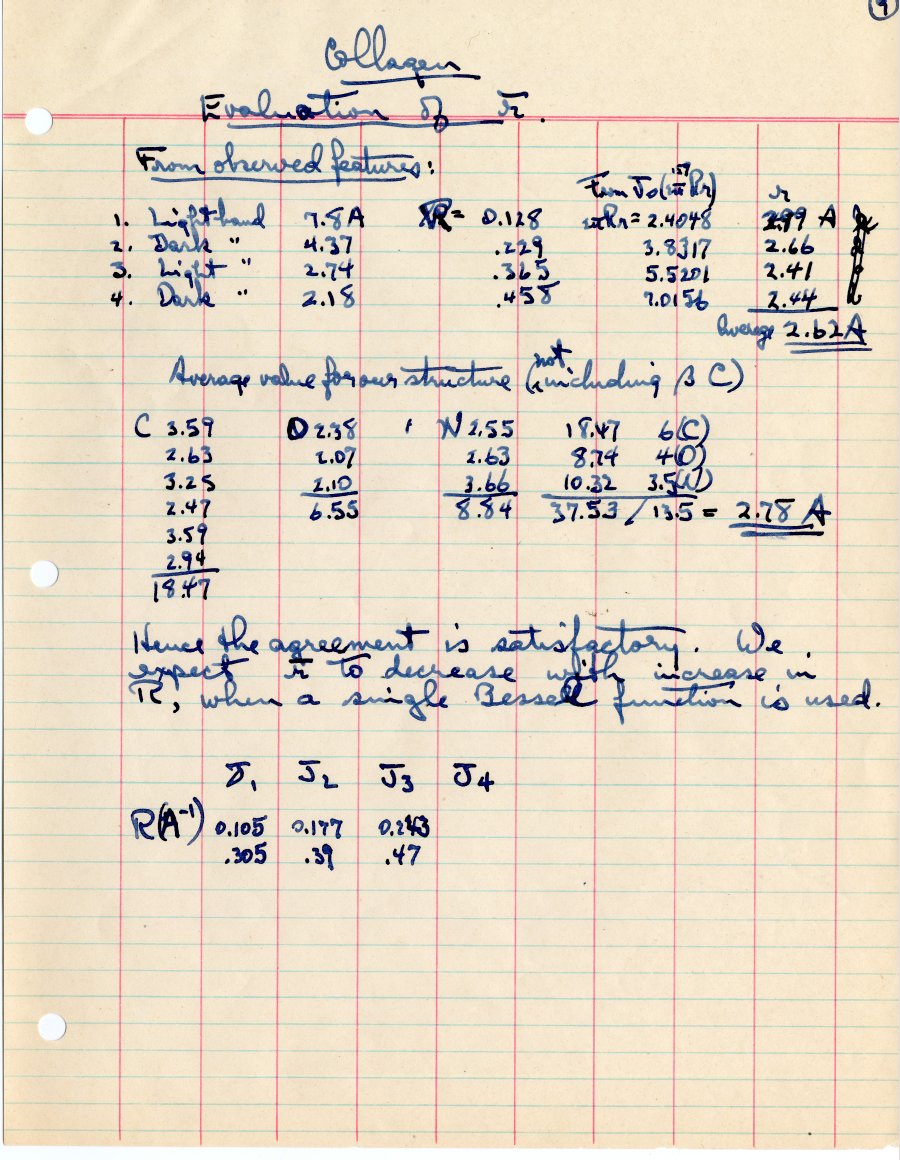 9
Collagen
Evaluation of r̅.
From observed features:
From J₀(2πRr) r
1. Light band 7.8 A R = 0.128 2πRr = 2.4048 2.99 A
2. Dark " 4.37 .229 3.8317 2.66
3. Light " 2.74 .365 5.5201 2.41
4. Dark " 2.18 .458 7.0156 2.44
Average 2.62 A
Average value for our structure (not including β C)
C 3.59 O 2.38 N 2.55 18.47 6(C)
2.63 2.07 2.63 8.74 4(O)
3.25 2.10 3.66 10.32 3.5(N)
2.47 6.55 8.84 37.53 / 13.5 = 2.78 A
3.59
2.94
18.47
Hence the agreement is satisfactory. We
expect r̅ to decrease with increase in
R, when a single Bessel function is used.
J₁ J₂ J₃ J₄
R(A⁻¹) 0.105 0.177 0.243
.305 .39 .47